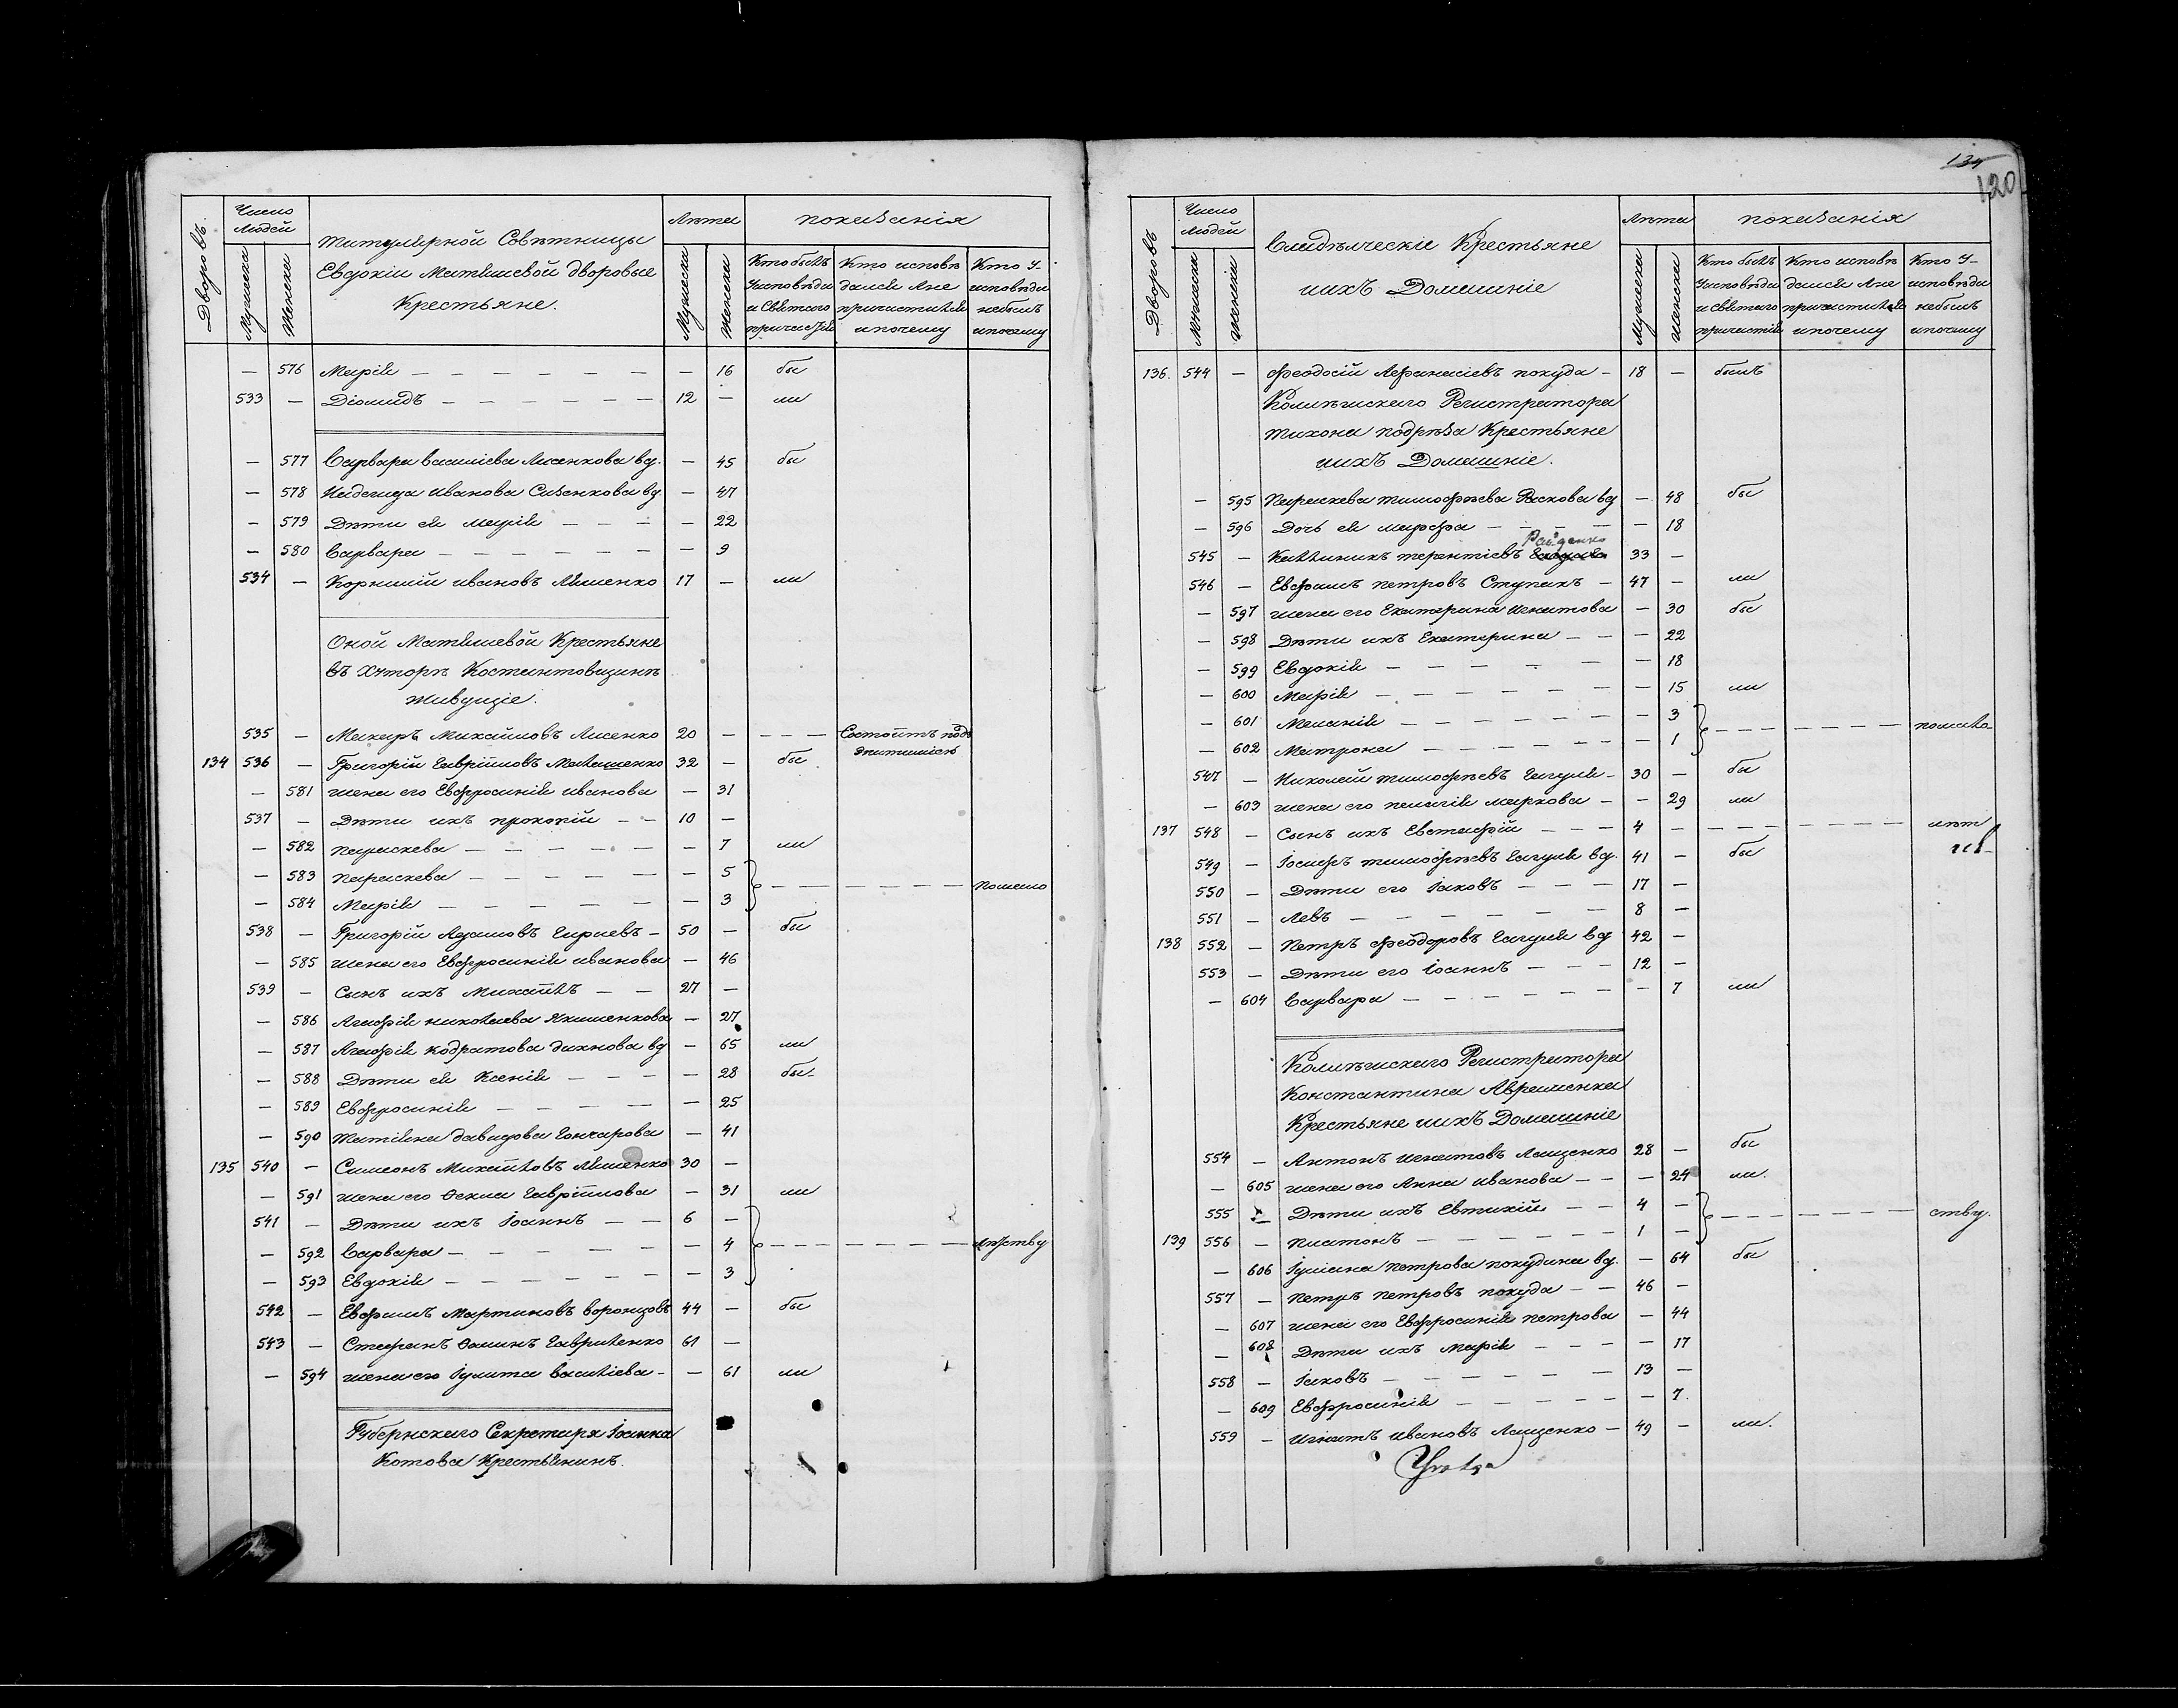 Дворовъ.
Число Людей
Мужеска
Женска
Титулярной Совѣтницы
Евдокіи Матяшевой дворовые
Крестьяне.
Лѣта
Мужеска
Женска
показанія
Кто былъ
Уисповѣди
и Святаго
причастія
Кто исповѣ
дался Ане
причастился
ипочему
Кто У-
исповѣди
небылъ
ипочему
— 576 Марія — — 16 бы
533 — Діомидъ — 12 — ли
— 577 Варвара василіева Лисенкова вд. — 45 бы
— 578 Надежда иванова вд. — 47
— 579 Дѣти ея марія — — 22
— 580 Варвара — — 9
534 — Корнилій ивановъ Ляшенко 17 — ли
Оной Матяшевой Крестьяне
въ Хуторѣ Костантовщинѣ
живущіе.
535 — Макаръ Михайловъ Лисенко 20 — — — — Состоитъ подъ
эпитиміею
134 536 — Григорій Гавріиловъ 32 — бы
— 581 жена его Евфросинія иванова — 31
537 — Дѣти ихъ прокопій — 10 —
— 582 параскева — — 7 ли
— 583 параскева — — 5
— 584 Марія — — 3 помало
538 — Григорій Адамовъ 50 — бы
— 585 жена его Евфросинія иванова — 46
539 — Сынъ ихъ Михаилъ — 27 —
— 586 Агафія николаева Якименкова — 27
— 587 Агафія кодратова вд — 65 ли
— 588 Дѣти ея Ксенія — — 28 бы-
— 589 Евфросинія — — 25
— 590 Татіяна давидова Гончарова — 41
135 540 — Симеонъ Михайловъ Ляшенко 30 —
— 591 жена его Ѳекла Гавріилова — 31 ли
541 — Дѣти ихъ Іоаннъ — 6 —
— 592 Варвара — — 4 лѣтству
— 593 Евдокія — — 3
542 — Евфимъ Мартиновъ воронцовъ 44 — бы
543 — Стефанъ Ѳоминъ Гавриленко 61 —
— 594 жена его Іулита василіева — — 61 ли
Губернскаго Секретаря Іоанна
Котова Крестьянинъ.
134
120
Дворовъ
Число Людей
Мужеска
Женска
Владѣлческіе Крестьяне
иихъ Домашніе
Лѣта
Мужеска
Женска
показанія
Кто былъ
Уисповѣди
и Святаго
причастія
Кто исповѣ
дался Ане
причастился
ипочему
Кто У-
исповѣди
небылъ
ипочему
136. 544 — Феодосій Афанасіевъ покуда — 18 — былъ
Колѣжскаго Регистратора
тихона подрѣза Крестьяне
иихъ Домашніе.
— 595 Параскева тимофѣева вд — 48 бы
— 596 Дочь ея марфа — — 18
Райденко
545 — Каллиникъ терентіевъ 33 —
546 — Евфимъ петровъ Ступакъ — 47 — ли
— 597 жена его Екатерина игнатова — 30 бы
— 598 Дѣти ихъ Екатерина — — 22
— 599 Евдокія — — 18
— 600 Марія — — 15 ли
— 601 Меланія — — 3 помало-
— 602 Матрона — — 1
547 — Николай тимофѣевъ Гагуля — 30 — бы
— 603 жена его пелагія маркова — — 29 ли
137 548 — Сынъ ихъ Евстафій — 4 — — — лѣт
549 — Іосифъ тимофѣевъ Гагуля вд. 41 — бы
550 — Дѣти его Іаковъ — 17 —
551 — Левъ — 8 —
138 552 — Петръ феодоровъ Гагуля вд 42 —
553 — Дѣти его Іоаннъ — 12 —
— 604 Варвара — — 7 ли
Колѣжскаго Регистратора
Константина Авраменка
Крестьяне иихъ Домашніе
554 — Антонъ игнатовъ Лащенко 28 — бы
— 605 жена его Анна иванова — — 24 ли.
555 — Дѣти ихъ Евтихій — 4 —
139 556 — Платонъ — 1 — ству.
— 606 Іуліана петрова покудина вд. — 64 бы
557 — Петръ петровъ покуда — 46 —
— 607 жена его Евфросинія петрова — 44
— 608 Дѣти ихъ Марія — — 17
558 — Іаковъ — 13 —
— 609 Евфросинія — — 7.
559 — игнатъ ивановъ Лащенко — 49 — ли.